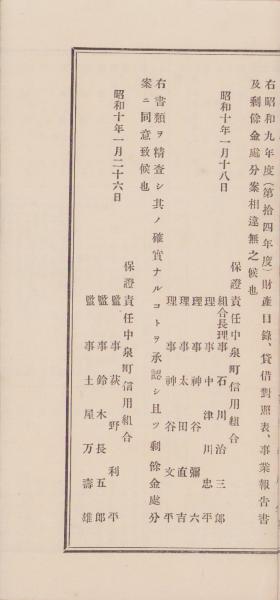 右昭和九年度(第拾四年度)財產目錄、貸借對照表、事業報吿書
及剩餘金處分案相違無之候也
昭和十年一月十八日
保證責任中泉町信用組合
組合長理事 石川治三郎
理事 中津川忠平
理事 神谷彌六
理事 太田直吉
理事 神谷文平
右書類ヲ精査シ其ノ確實ナルコトヲ承認シ且ツ剩餘金處分
案ニ同意致候也
昭和十年一月二十六日
保證責任中泉町信用組合
監事 荻野利平
監事 鈴木長五郎
監事 土屋万壽雄